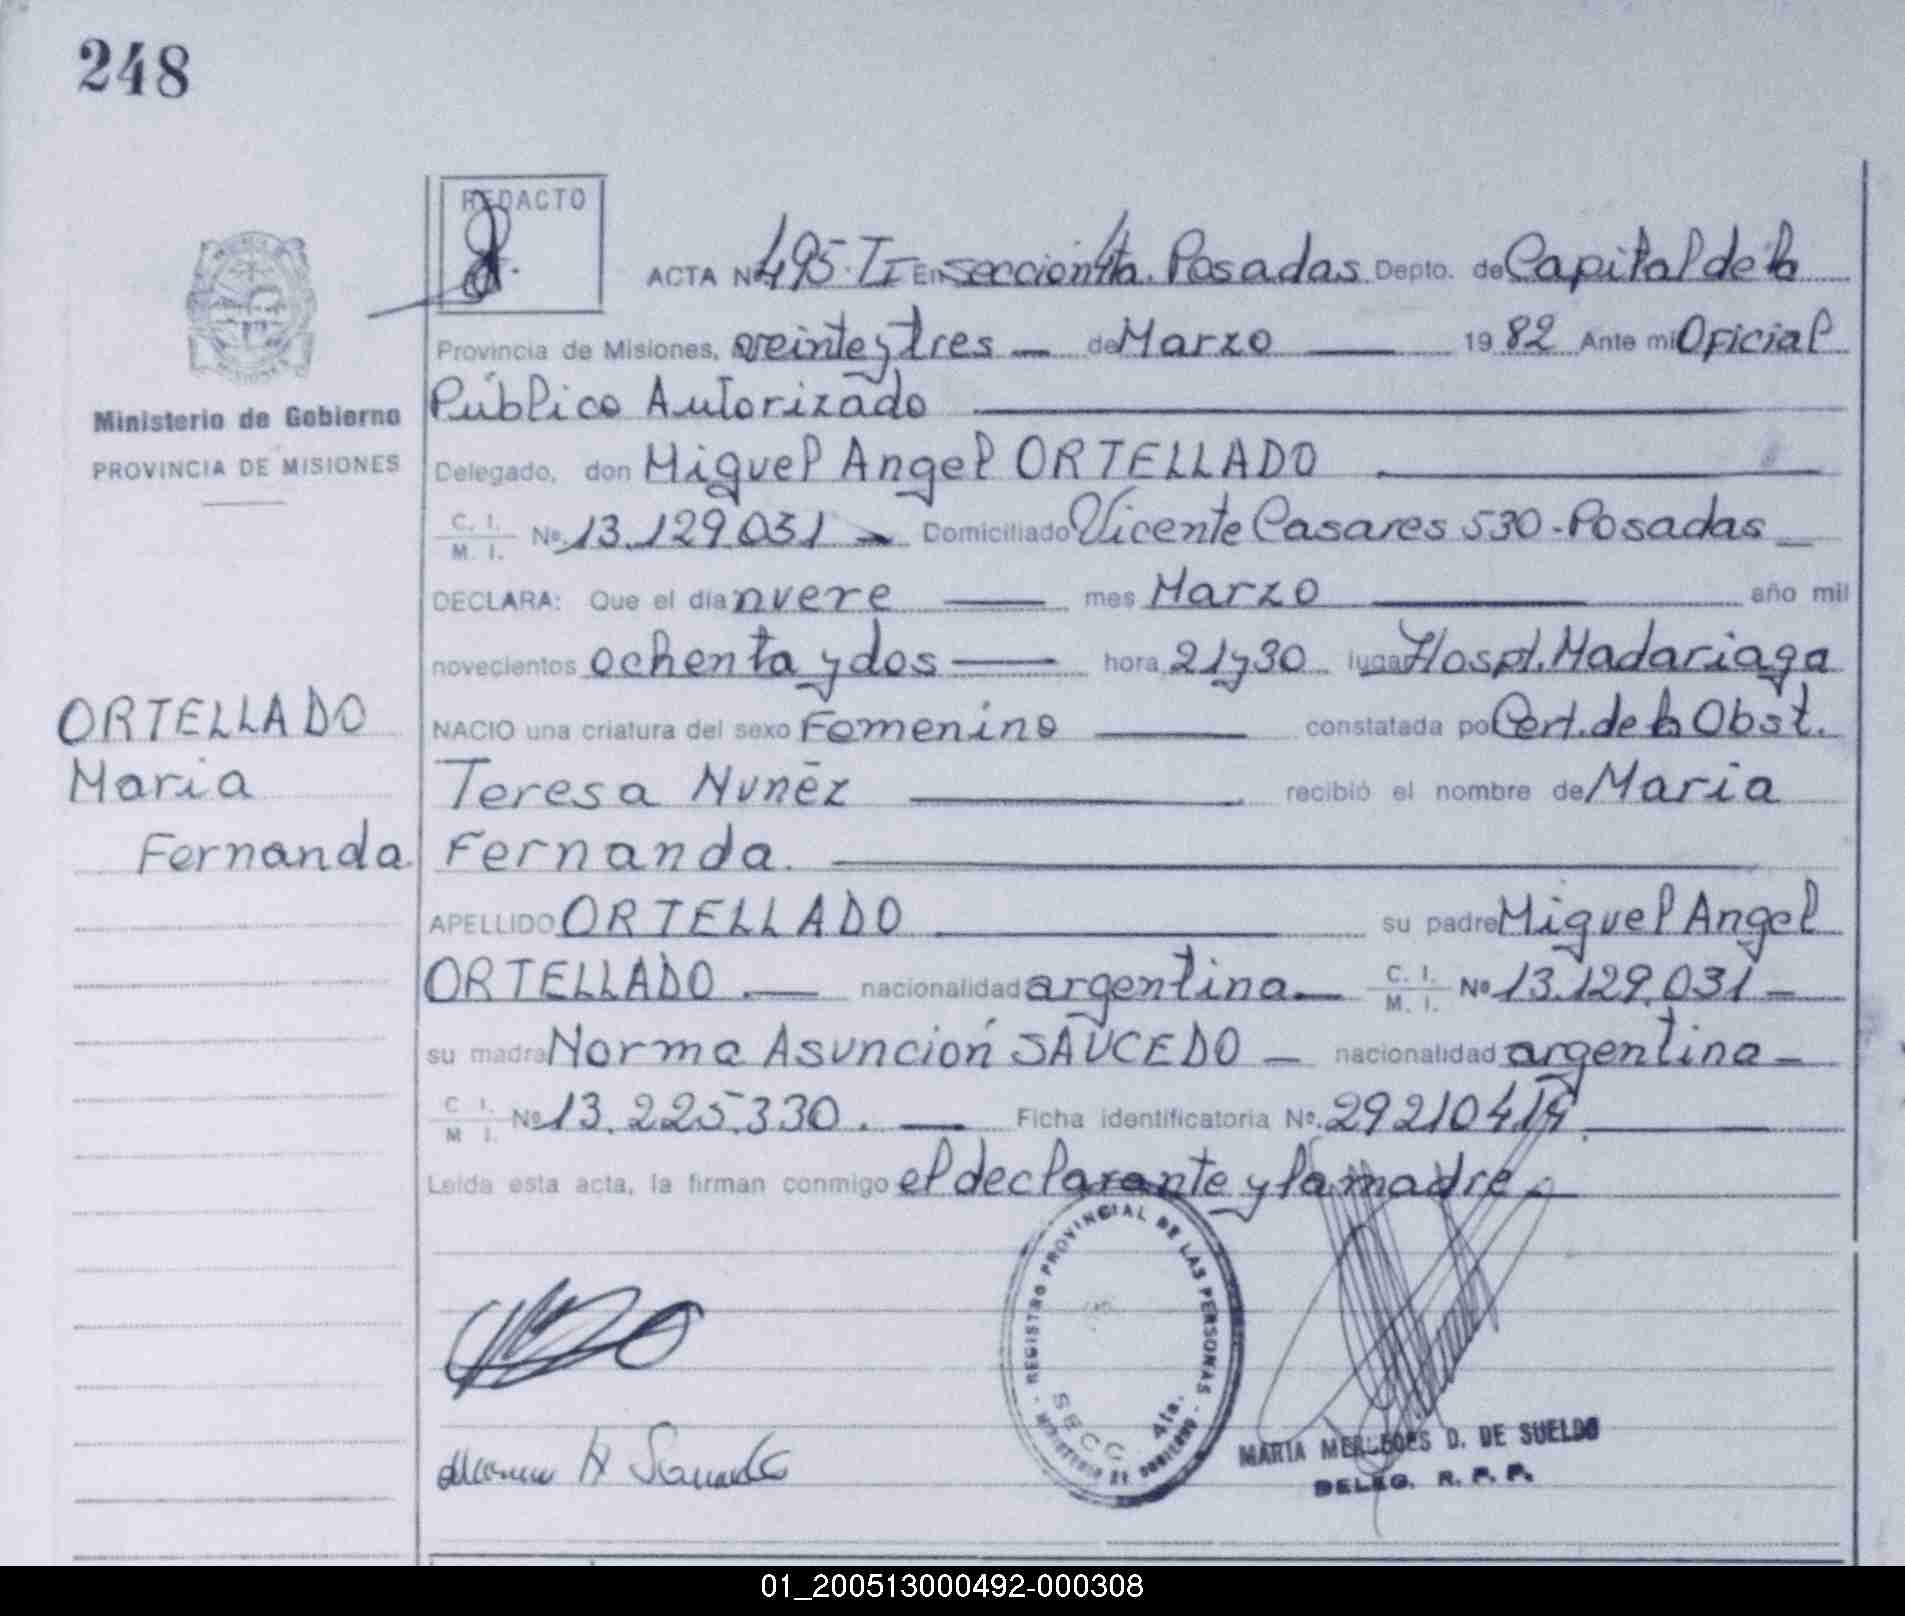 248
REDACTO
ACTA Nº 495-TI En seccion 4ta. Posadas Depto. de Capital de la
Provincia de Misiones, veinte y tres de Marzo 1982 Ante mi Oficial
Público Autorizado
Ministerio de Gobierno
PROVINCIA DE MISIONES
Delegado, don Miguel Angel ORTELLADO
C. I. M. I. Nº 13.129.031 Domiciliado Vicente Casares 530-Posadas
DECLARA: Que el día nueve mes Marzo año mil
novecientos ochenta y dos hora 21y30 lugar Hospl. Madariaga
NACIO una criatura del sexo Femenino constatada por Cert. de la Obst.
Teresa Nuñez recibió el nombre de Maria
Fernanda.
ORTELLADO
Maria
Fernanda.
APELLIDO ORTELLADO su padre Miguel Angel
ORTELLADO nacionalidad argentina C. I. M. I. Nº 13.129.031
su madre Norma Asunción SAUCEDO nacionalidad argentina
C. I. M. I. Nº 13.225.330. Ficha identificatoria Nº. 29210414.
Leída esta acta, la firman conmigo el declarante y la madre
REGISTRO PROVINCIAL DE LAS PERSONAS
SECC. 4ta.
MINISTERIO DE GOBIERNO
MARIA MERCEDES D. DE SUELDO
DELEG. R. P. P.
01_200513000492-000308